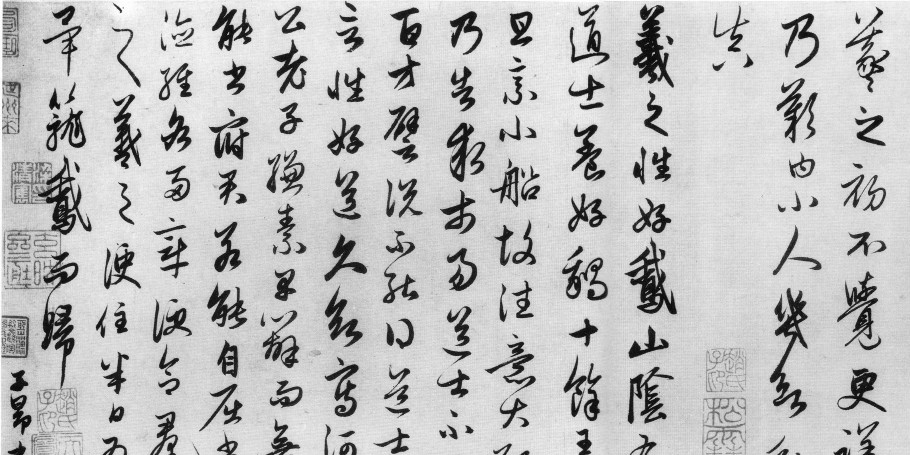 羲之初不覺更詳
乃歎曰小人幾欲
真
羲之性好鵞山陰有
道士養好鵝十餘王
旦乘小船故往意大
乃告求市易道士不
百方譬說不能得道士
言性好道久欲寫河
公老子縑素早辦而無
能書府君若能自屈書
德經各兩章便合羣
之羲之便住半日為
畢籠鵞而歸
子昂